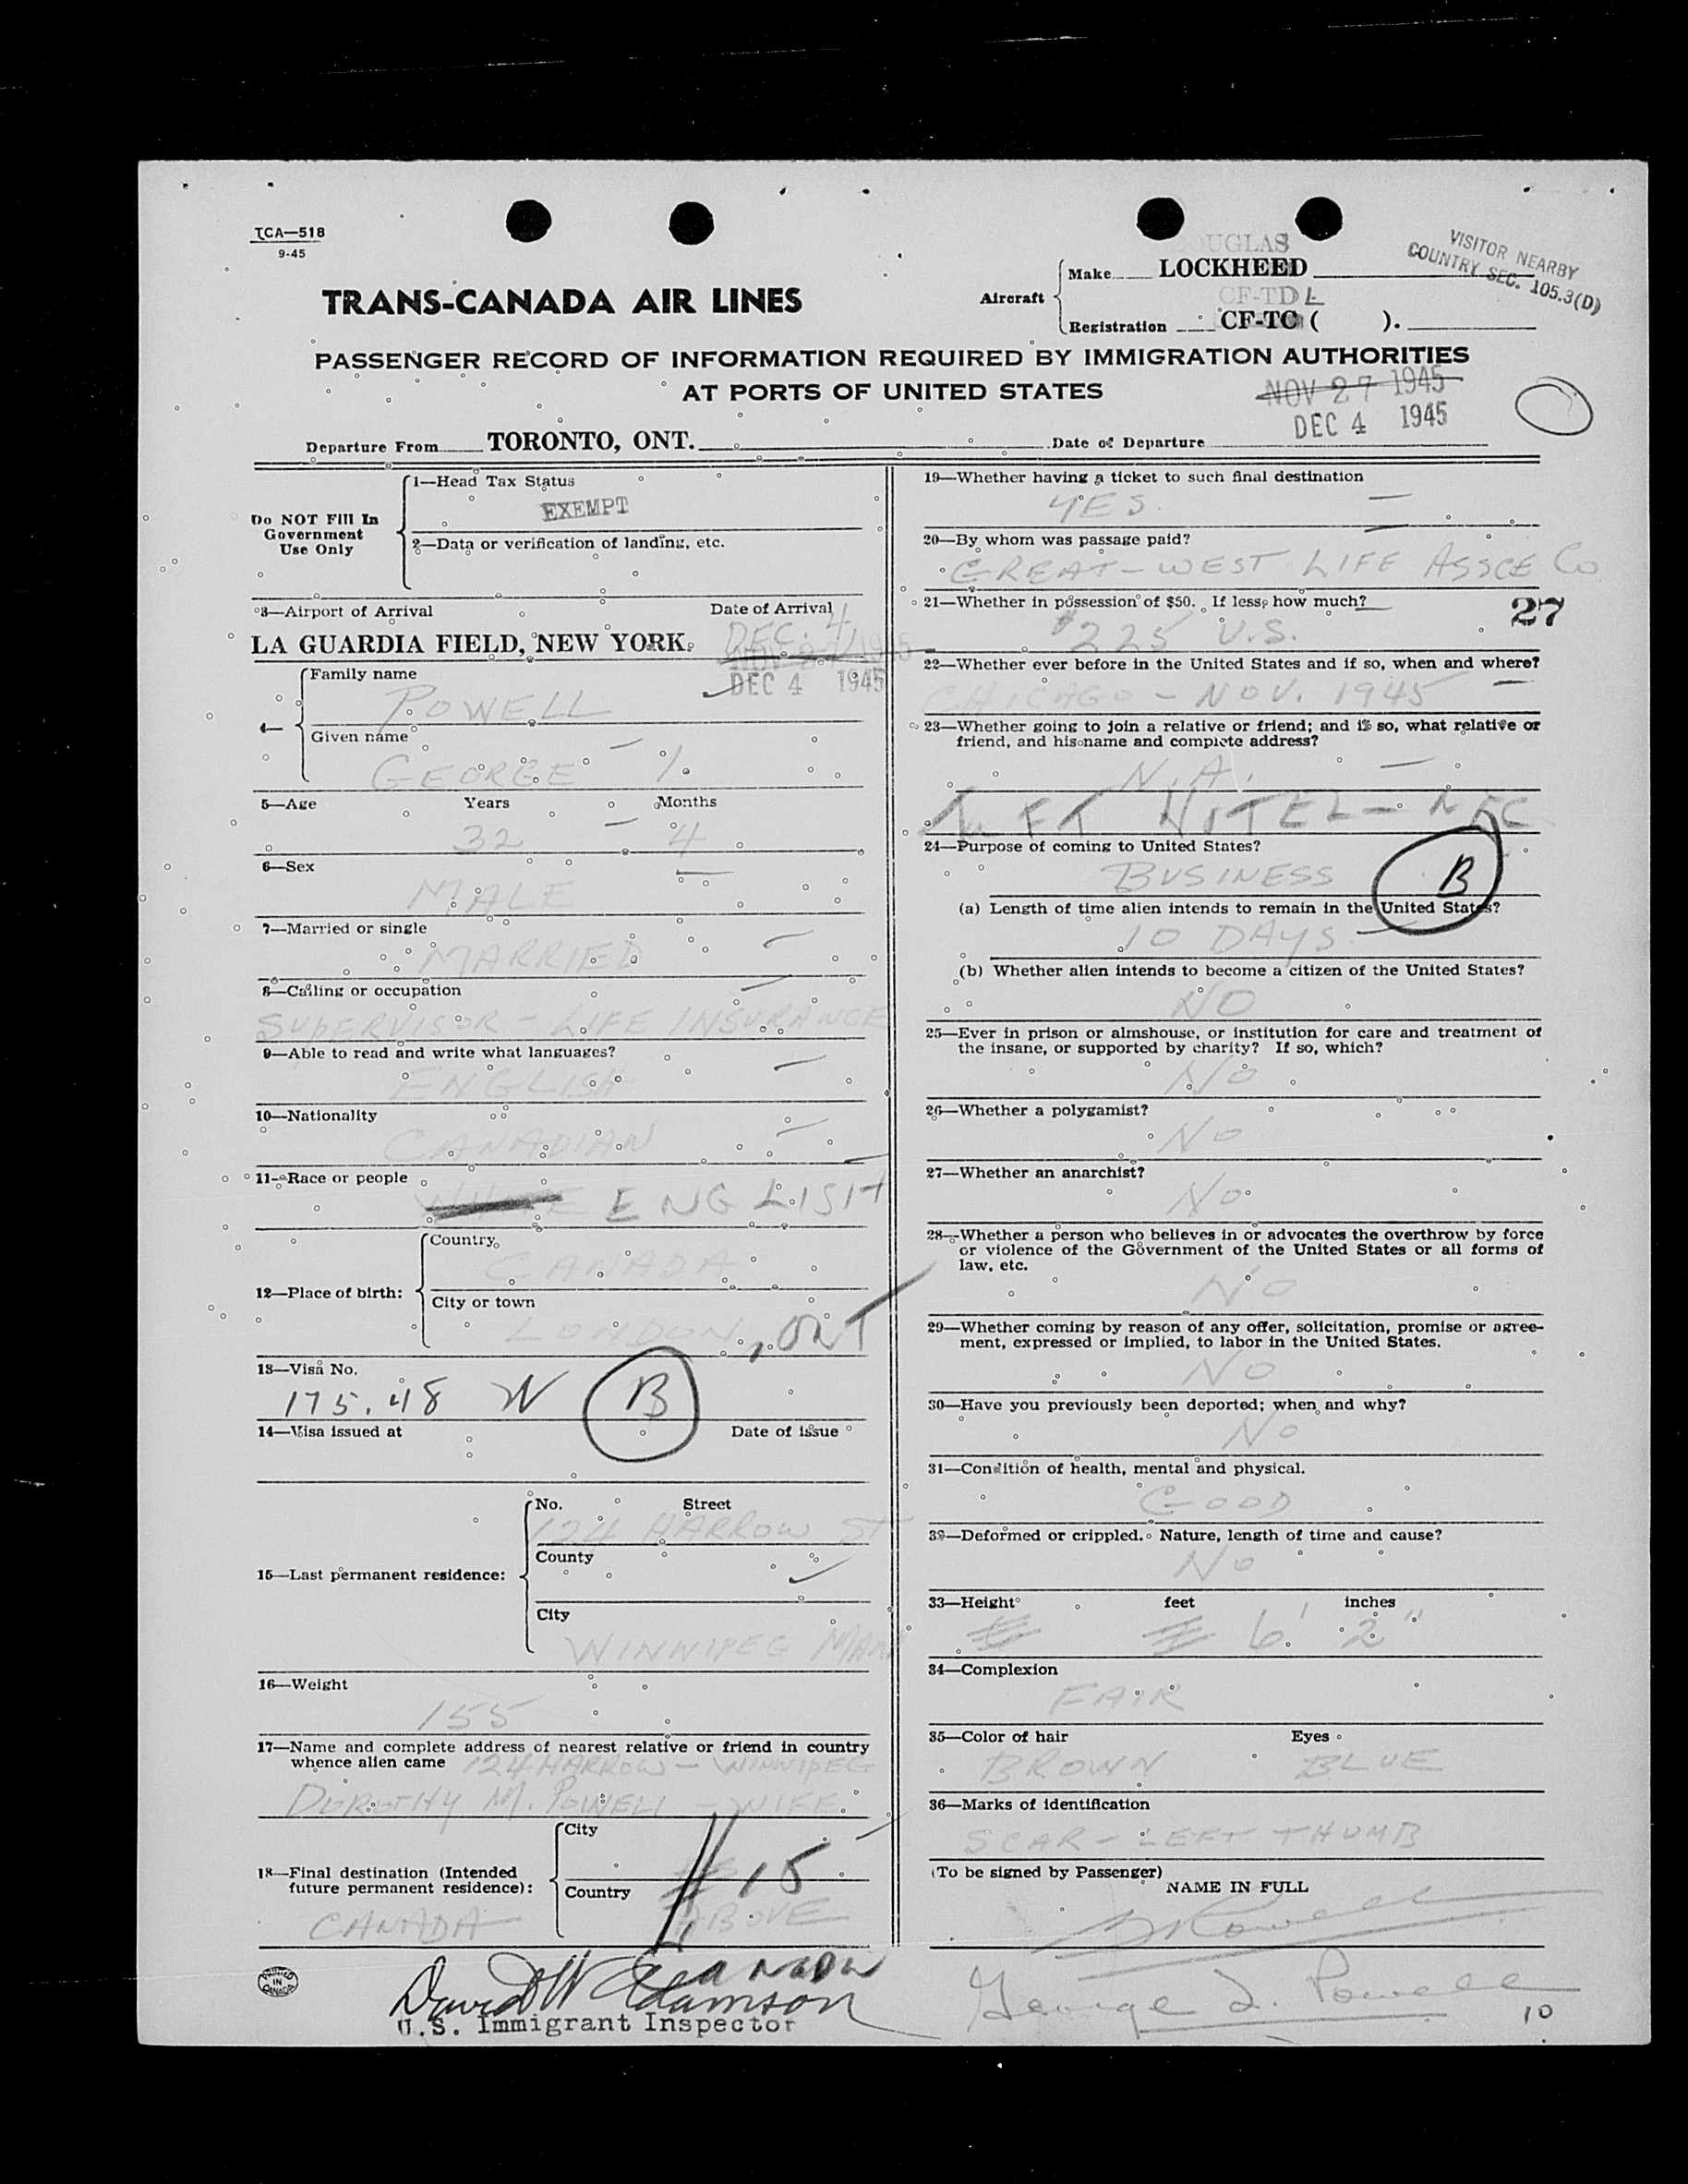 TCA—518
9-45
VISITOR NEARBY
COUNTRY SEC. 105.3(D)
TRANS-CANADA AIR LINES
Aircraft
DOUGLAS
Make LOCKHEED
CF-TDL
Registration CF-TC ( ).
PASSENGER RECORD OF INFORMATION REQUIRED BY IMMIGRATION AUTHORITIES
AT PORTS OF UNITED STATES
NOV 27 1945
DEC 4 1945
Departure From TORONTO, ONT. Date of Departure
Do NOT Fill In
Government
Use Only
1—Head Tax Status
EXEMPT
2—Data or verification of landing, etc.
3—Airport of Arrival Date of Arrival
DEC. 4
LA GUARDIA FIELD, NEW YORK.
NOV 27 1945
DEC 4 1945
4—
Family name
POWELL
Given name
GEORGE
5—Age Years Months
32 4
6—Sex
MALE
7—Married or single
MARRIED
8—Calling or occupation
SUPERVISOR - LIFE INSURANCE
9—Able to read and write what languages?
ENGLISH
10—Nationality
CANADIAN
11—Race or people
WHITE ENGLISH
12—Place of birth:
Country
CANADA
City or town
LONDON, ONT
13—Visa No.
175.48 W B
14—Visa issued at Date of issue
15—Last permanent residence:
No. Street
124 HARROW ST
County
City
WINNIPEG MAN
16—Weight
155
17—Name and complete address of nearest relative or friend in country
whence alien came 124 HARROW - WINNIPEG
DOROTHY M. POWELL - WIFE
18—Final destination (Intended
future permanent residence):
City
# 15
Country
ABOVE
CANADA
CANADA
David W Adamson
U.S. Immigrant Inspector
PRINTED IN CANADA
19—Whether having a ticket to such final destination
YES
20—By whom was passage paid?
GREAT-WEST LIFE ASSCE Co
21—Whether in possession of $50. If less, how much?
27
$225 U.S.
22—Whether ever before in the United States and if so, when and where?
CHICAGO - NOV. 1945
23—Whether going to join a relative or friend; and if so, what relative or
friend, and his name and complete address?
N.A.
TAFT HOTEL - NYC
24—Purpose of coming to United States?
BUSINESS B
(a) Length of time alien intends to remain in the United States?
10 DAYS
(b) Whether alien intends to become a citizen of the United States?
NO
25—Ever in prison or almshouse, or institution for care and treatment of
the insane, or supported by charity? If so, which?
No
26—Whether a polygamist?
No
27—Whether an anarchist?
No
28—Whether a person who believes in or advocates the overthrow by force
or violence of the Government of the United States or all forms of
law, etc.
No
29—Whether coming by reason of any offer, solicitation, promise or agree-
ment, expressed or implied, to labor in the United States.
No
30—Have you previously been deported; when and why?
No
31—Condition of health, mental and physical.
GOOD
32—Deformed or crippled. Nature, length of time and cause?
No
33—Height feet inches
6' 2"
34—Complexion
FAIR
35—Color of hair Eyes
BROWN BLUE
36—Marks of identification
SCAR - LEFT THUMB
(To be signed by Passenger)
NAME IN FULL
Powell
George L. Powell
10